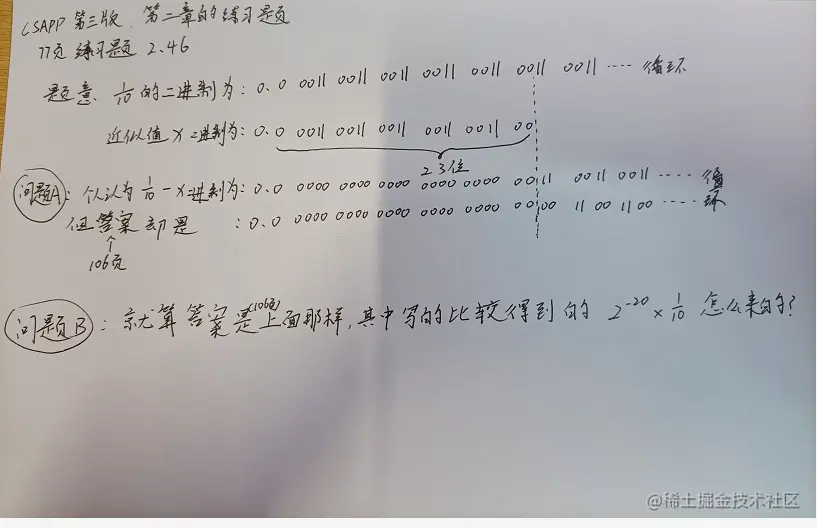 CSAPP 第三版. 第二章的练习题
77页 练习题 2.46
题意. 1/10 的二进制为: 0.0 0011 0011 0011 0011 0011 0011 0011 ···· 循环
近似值 x 二进制为: 0.0 0011 0011 0011 0011 0011 00
23位
问题A: 个人认为 1/10 - x 二进制为: 0.0 0000 0000 0000 0000 0000 0011 0011 0011 ···· 循环
但答案却是 : 0.0 0000 0000 0000 0000 0000 0000 1100 1100 ···· 循环
↑
106页
问题B: 就算答案(106页)是上面那样, 其中写的比较得到的 2^-20 × 1/10 怎么来的?
@稀土掘金技术社区